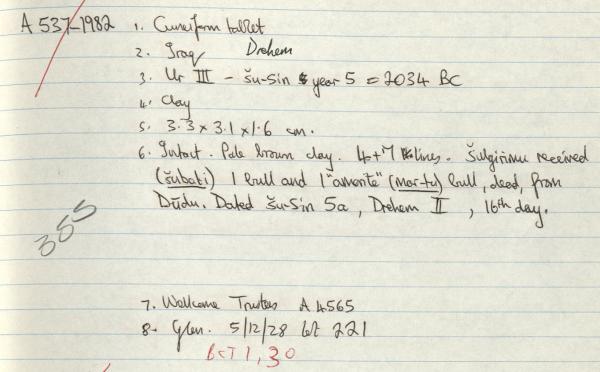 A 537-1982 1. Cuneiform tablet
2. Iraq Drehem
3. Ur III - Šu-Sin year 5 = 2034 BC
4. Clay
5. 3.3 x 3.1 x 1.6 cm.
6. Intact. Pale brown clay. 4+7 lines. Šulgirimu received
(šubati) 1 bull and 1 "amorite" (mar-tu) bull, dead, from
Dūdu. Dated Šu-Sin 5a, Drehem II, 16th day.
355
7. Wellcome Trustees A 4565
8. Glen. 5/12/28 lot 221
BCT 1, 30